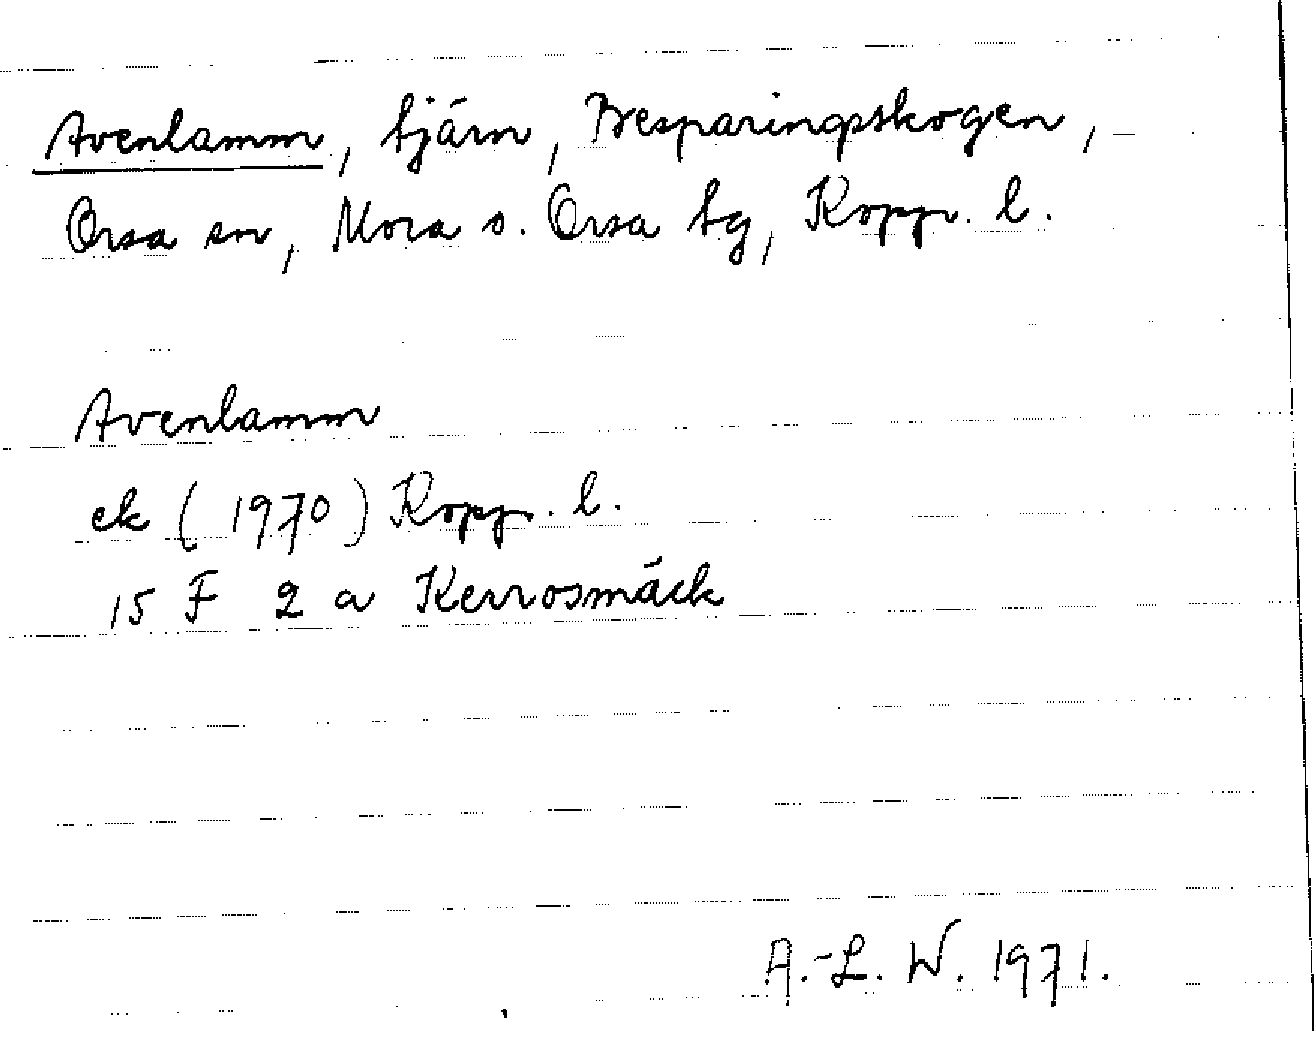 Avenlamm, tjärn, Besparingsskogen,
Orsa sn, Mora o. Orsa tg, Kopp. l.
Avenlamm
ek (1970) Kopp. l.
15 F 2 a Kerrosmäck
A.-L. W. 1971.